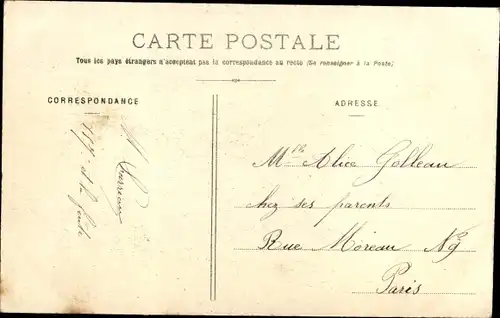 CARTE POSTALE
Tous les pays étrangers n'acceptent pas la correspondance au recto (Se renseigner à la Poste)
CORRESPONDANCE
ADRESSE
Mlle Alice Golleau
chez ses parents
Rue Moreau N9
Paris